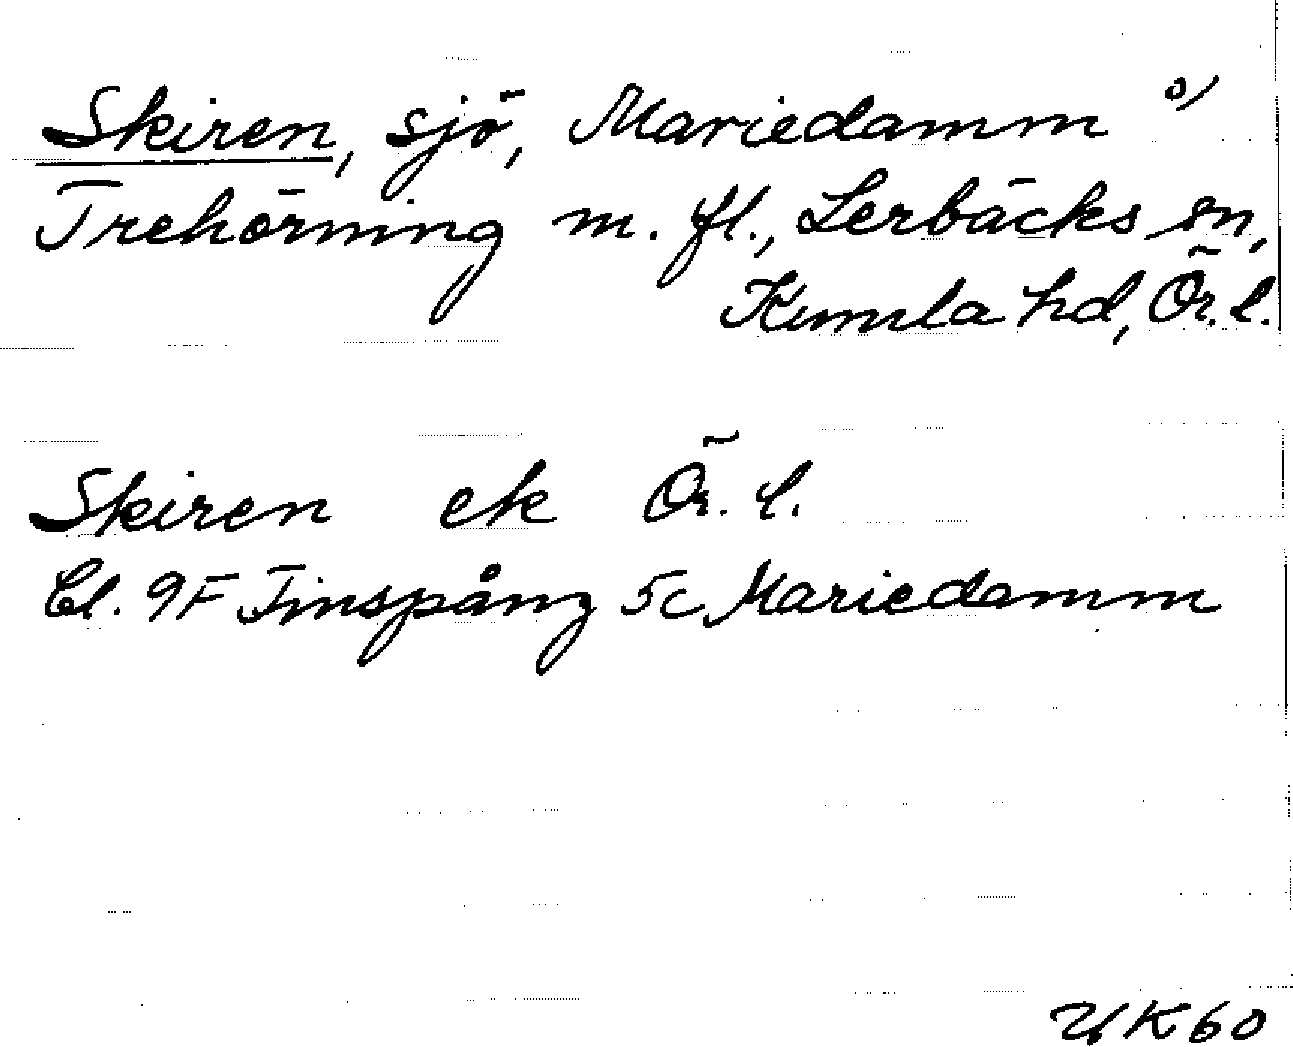 Skiren, sjö, Mariedamm o/
Trehörning m. fl., Lerbäcks sn,
Kumla hd, Ör. l.
Skiren ek Ör. l.
Bl. 9F Finspång 5c Mariedamm
UK60